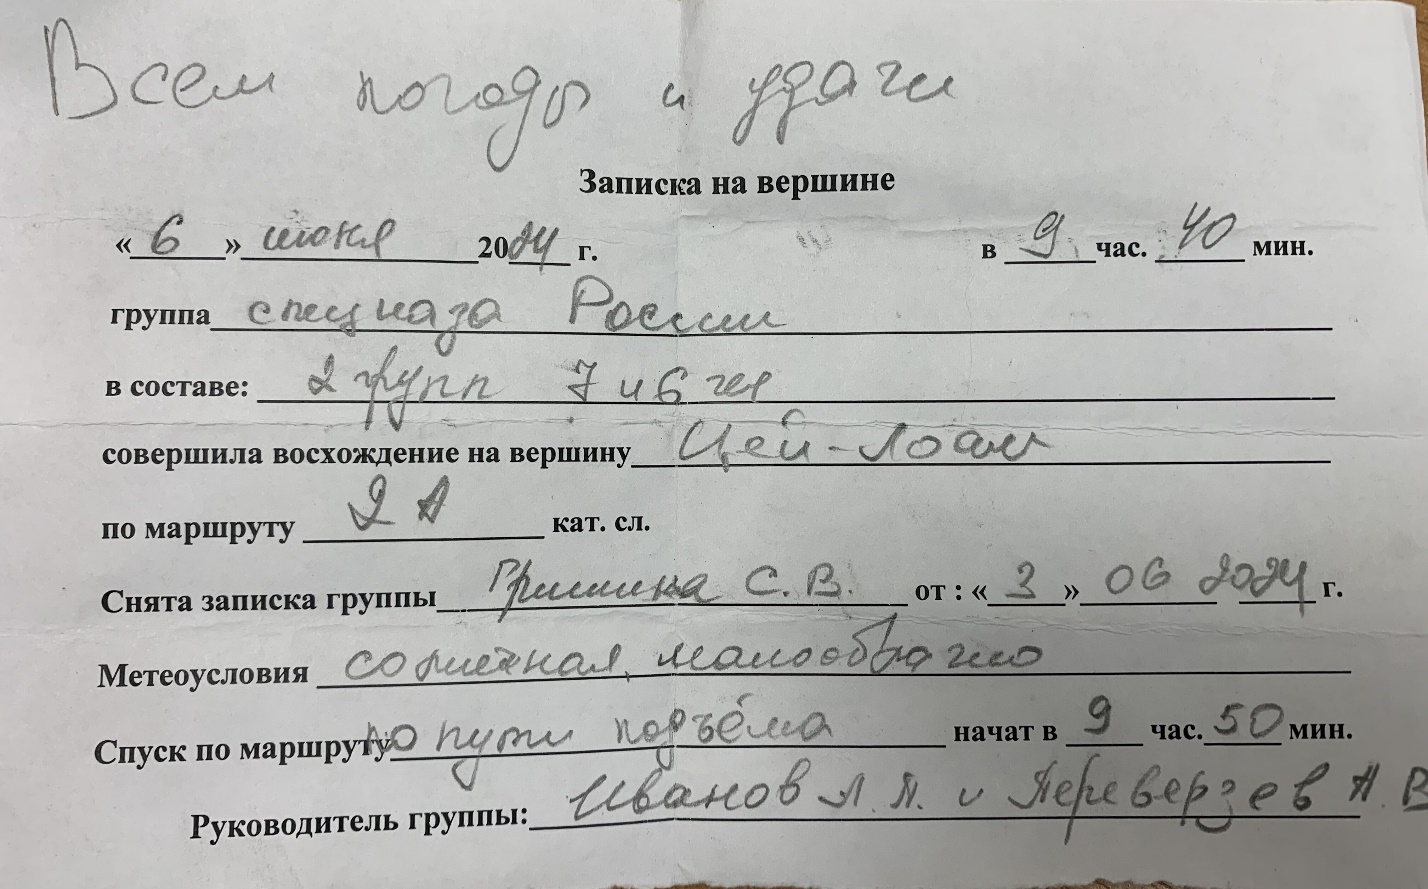 Всем погоды и удачи
Записка на вершине
« 6 » июня 2024 г. в 9 час. 40 мин.
группа спецназа России
в составе: 2 групп 7 и 6 чел
совершила восхождение на вершину Цей-Лоам
по маршруту 2А кат. сл.
Снята записка группы Гришина С.В. от : « 3 » 06 2024 г.
Метеоусловия солнечная, малооблачно
Спуск по маршруту по пути подъёма начат в 9 час. 50 мин.
Руководитель группы: Иванов Л.П. и Переверзев А.В